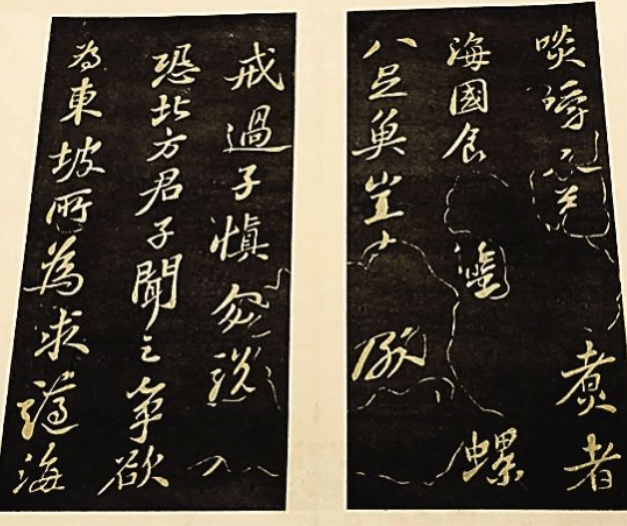 啖嚼又益煮者
海國食螺
八足魚豈
戒過子慎勿說
恐北方君子聞之爭欲
為東坡所為求謫海